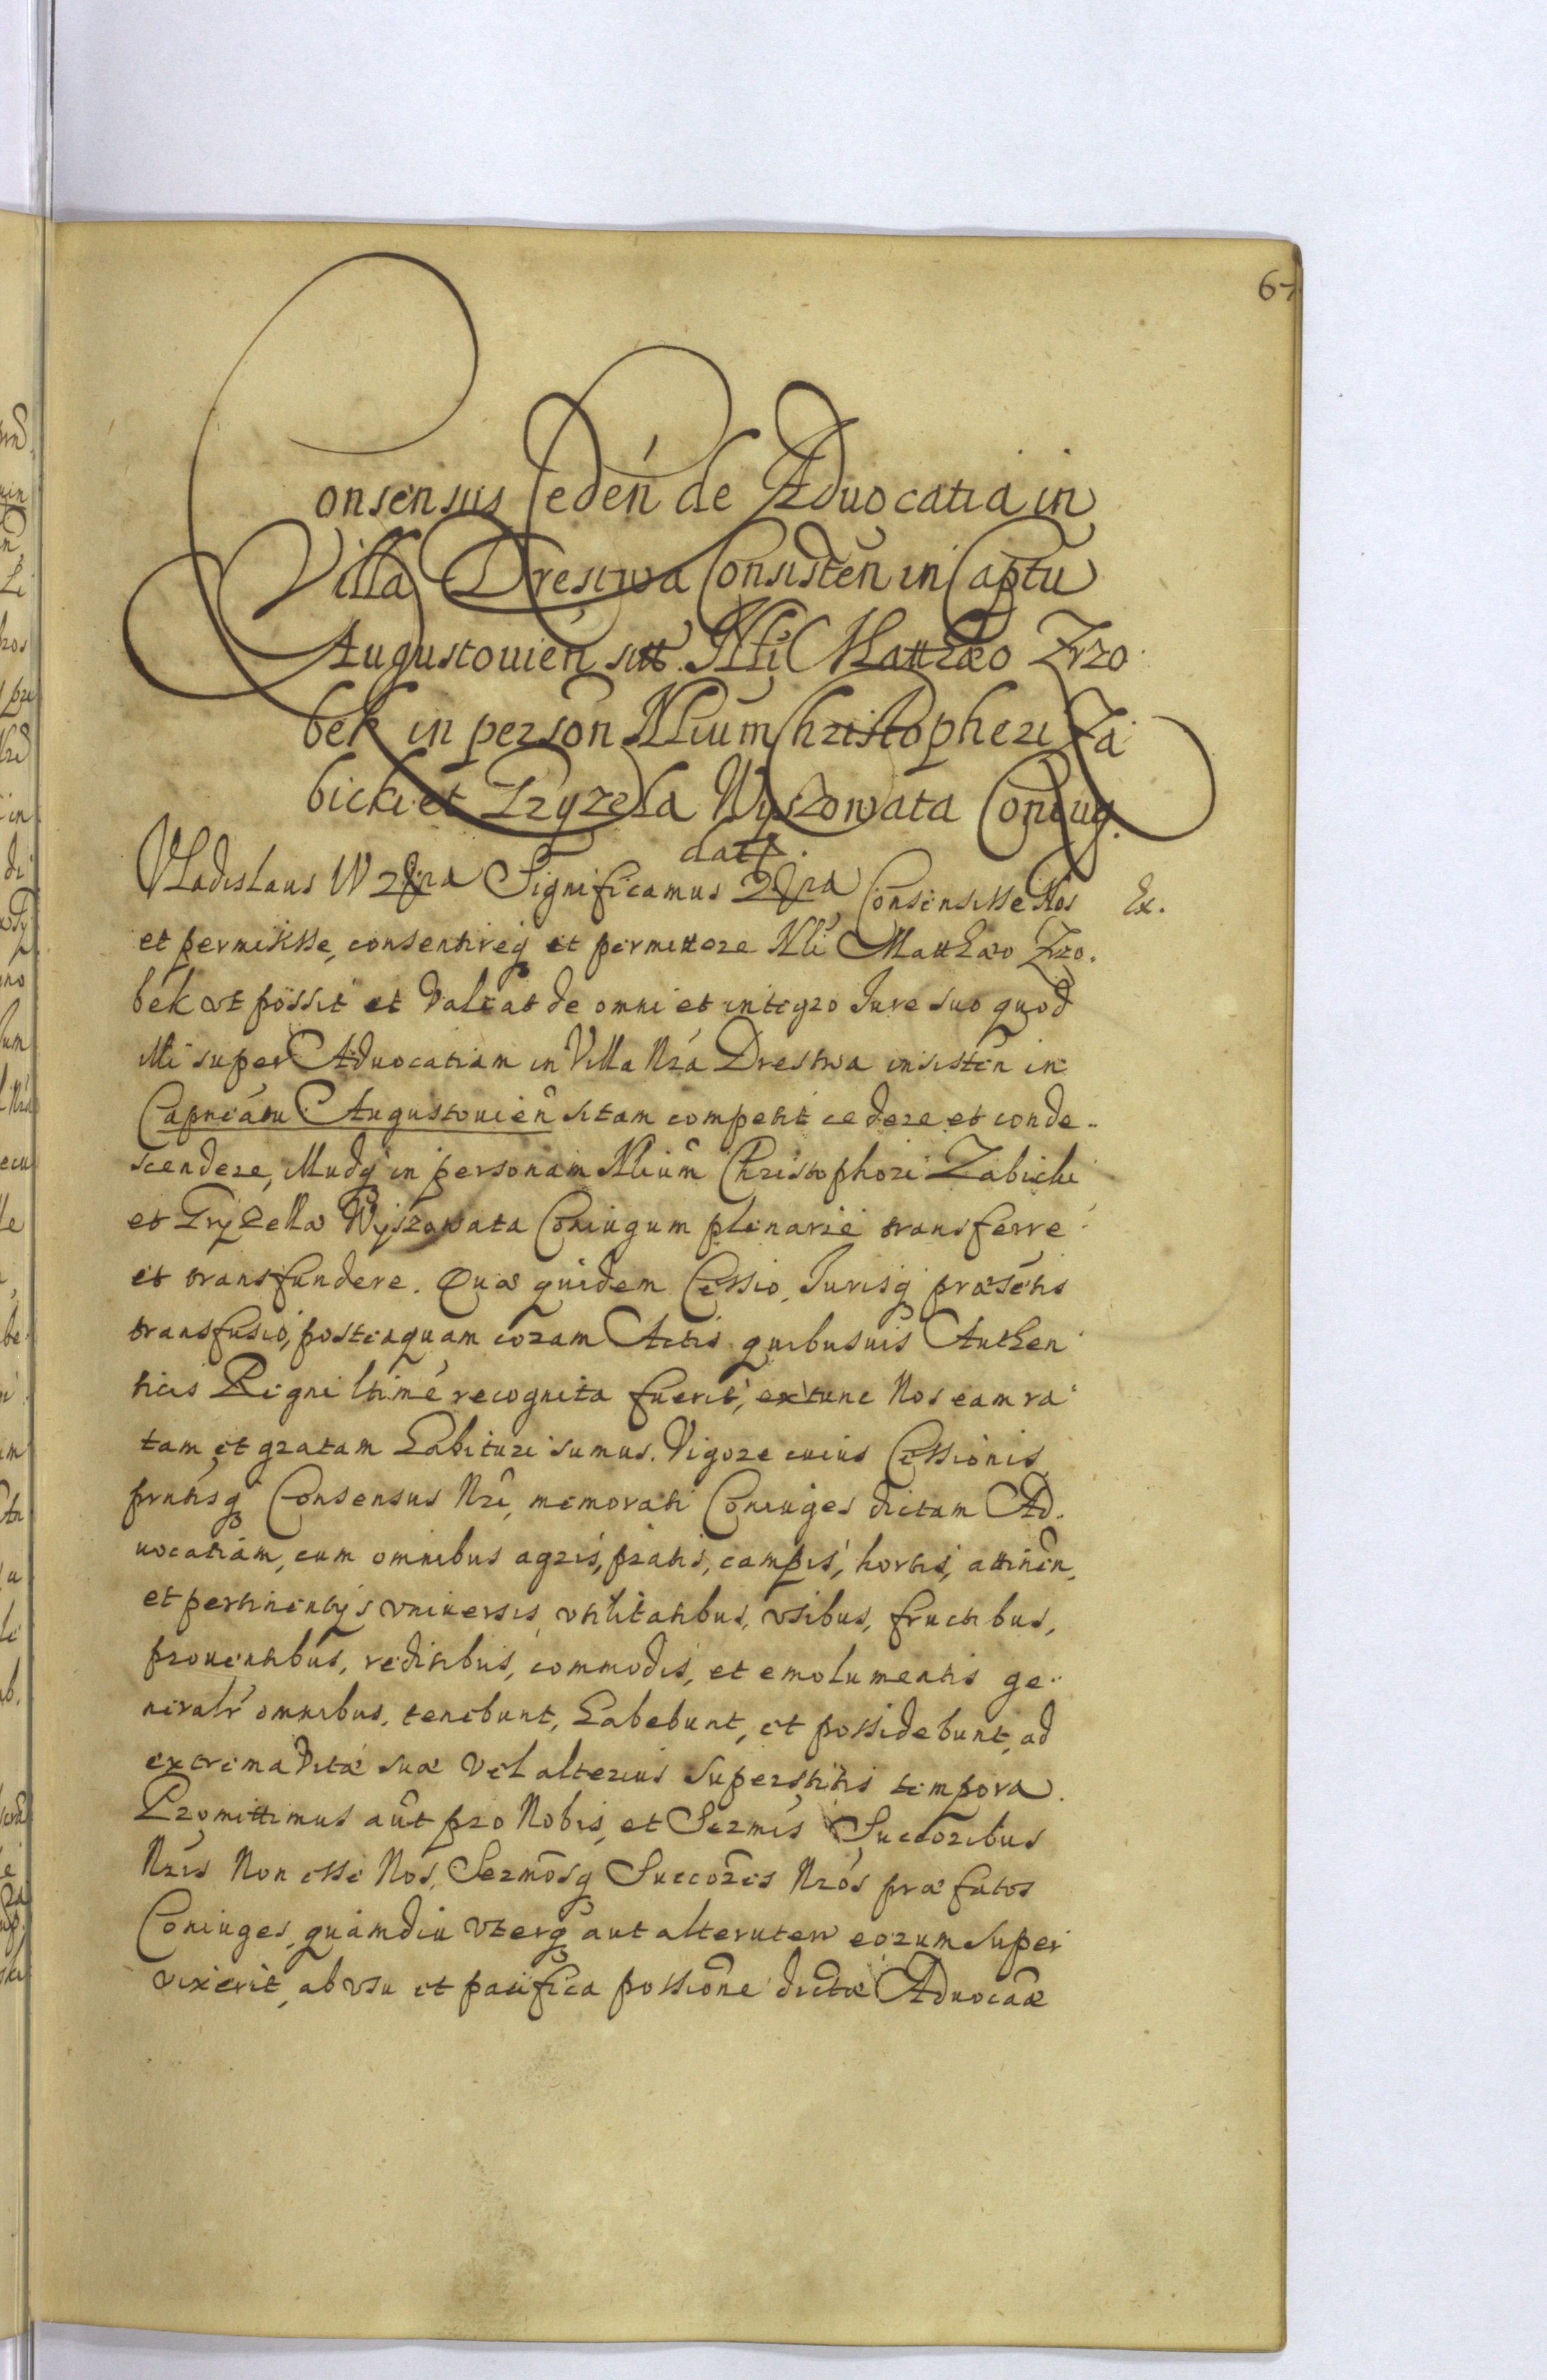 67
Consensus cedeń de Aduocatia in
Villa Drestwa Consisteń in Captu
Augustouień sitt. Nli Matthæo Zrzo
bek in persoń Nlium Christopheri Za
bicki et Gryzella Wyszowata Coniug.
dat.
Vladislaus IV &c̃ra Significamus &c̃ra Consensisse Nos Ex.
et permisisse, consentireq et permittere Nli Matthæo Zrzo.
bek ut possit et valeat de omni et integro Iure suo quod
illi super Aduocatiam in Villa Nrá Drestwa insisteń in
Capneatu Augustouień sitam competit cedere et conde-
scendere, illudq in personam Nlium Christophori Zabicki
et Gryzella Wyszowata Coniugum plenarie transferre
et transfundere. Quæ quidem Cessio, Jurisq præsetis
transfusio, posteaquam coram Actis quibusuis Authen
ticis Regni ltime recognita fuerit, extunc Nos eam ra
tam et gratam habituri sumus. Vigore cuius Cessionis
prntisq Consensus Nri, memorati Coniuges dictam Ad.
uocatiam, cum omnibus agris, pratis, campis, hortis, attineń,
et pertinentijs vniuersis, vtilitatibus, vsibus, fructibus,
prouentibus, reditibus, commodis, et emolumentis ge-
neralr omnibus, tenebunt, habebunt, et possidebunt, ad
extrema vitæ suæ vel alterius superstitis tempora.
Promittimus aut pro Nobis, et Sermis Succoribus
Nris Non esse Nos, Sermosq Succores Nros præfatos
Coniuges, quamdiu vterq aut alteruter eorum super
vixerit, ab vsu et pacifica possione dictæ Aduocaæ